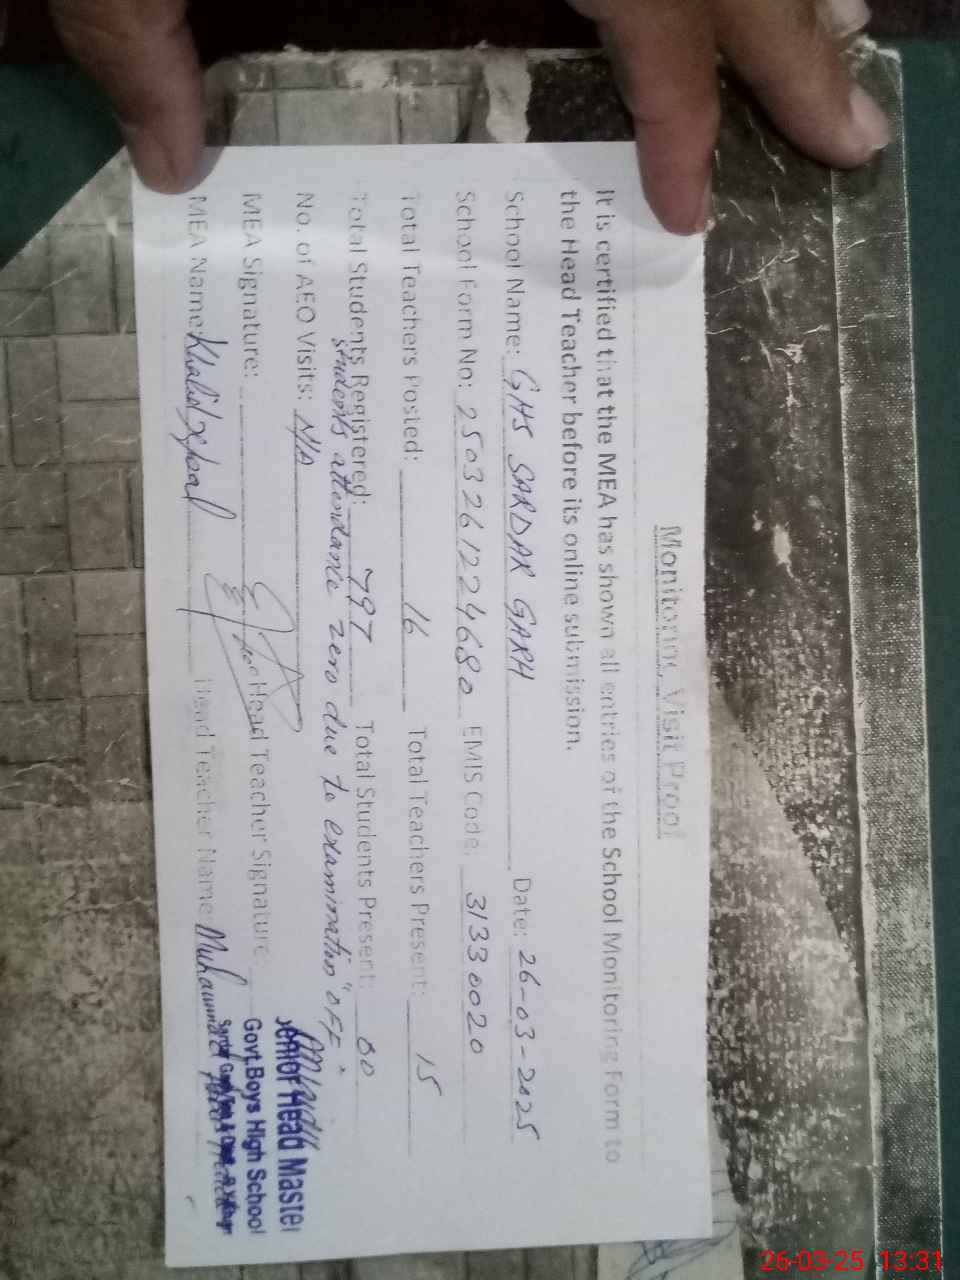 Monitoring Visit Proof
It is certified that the MEA has shown all entries of the School Monitoring Form to
the Head Teacher before its online submission.
School Name: GHS SARDAR GARH Date: 26-03-2025
School Form No: 2503261224680 EMIS Code: 31330020
Total Teachers Posted: 16 Total Teachers Present: 15
Total Students Registered: 797 Total Students Present: 00
students attendance zero due to examination "OFF"
No. of AEO Visits: N/A
MEA Signature: Head Teacher Signature:
MEA Name: Khalid Iqbal Head Teacher Name Muhammad
Senior Head Master
Govt.Boys High School
26-03-25 13:31